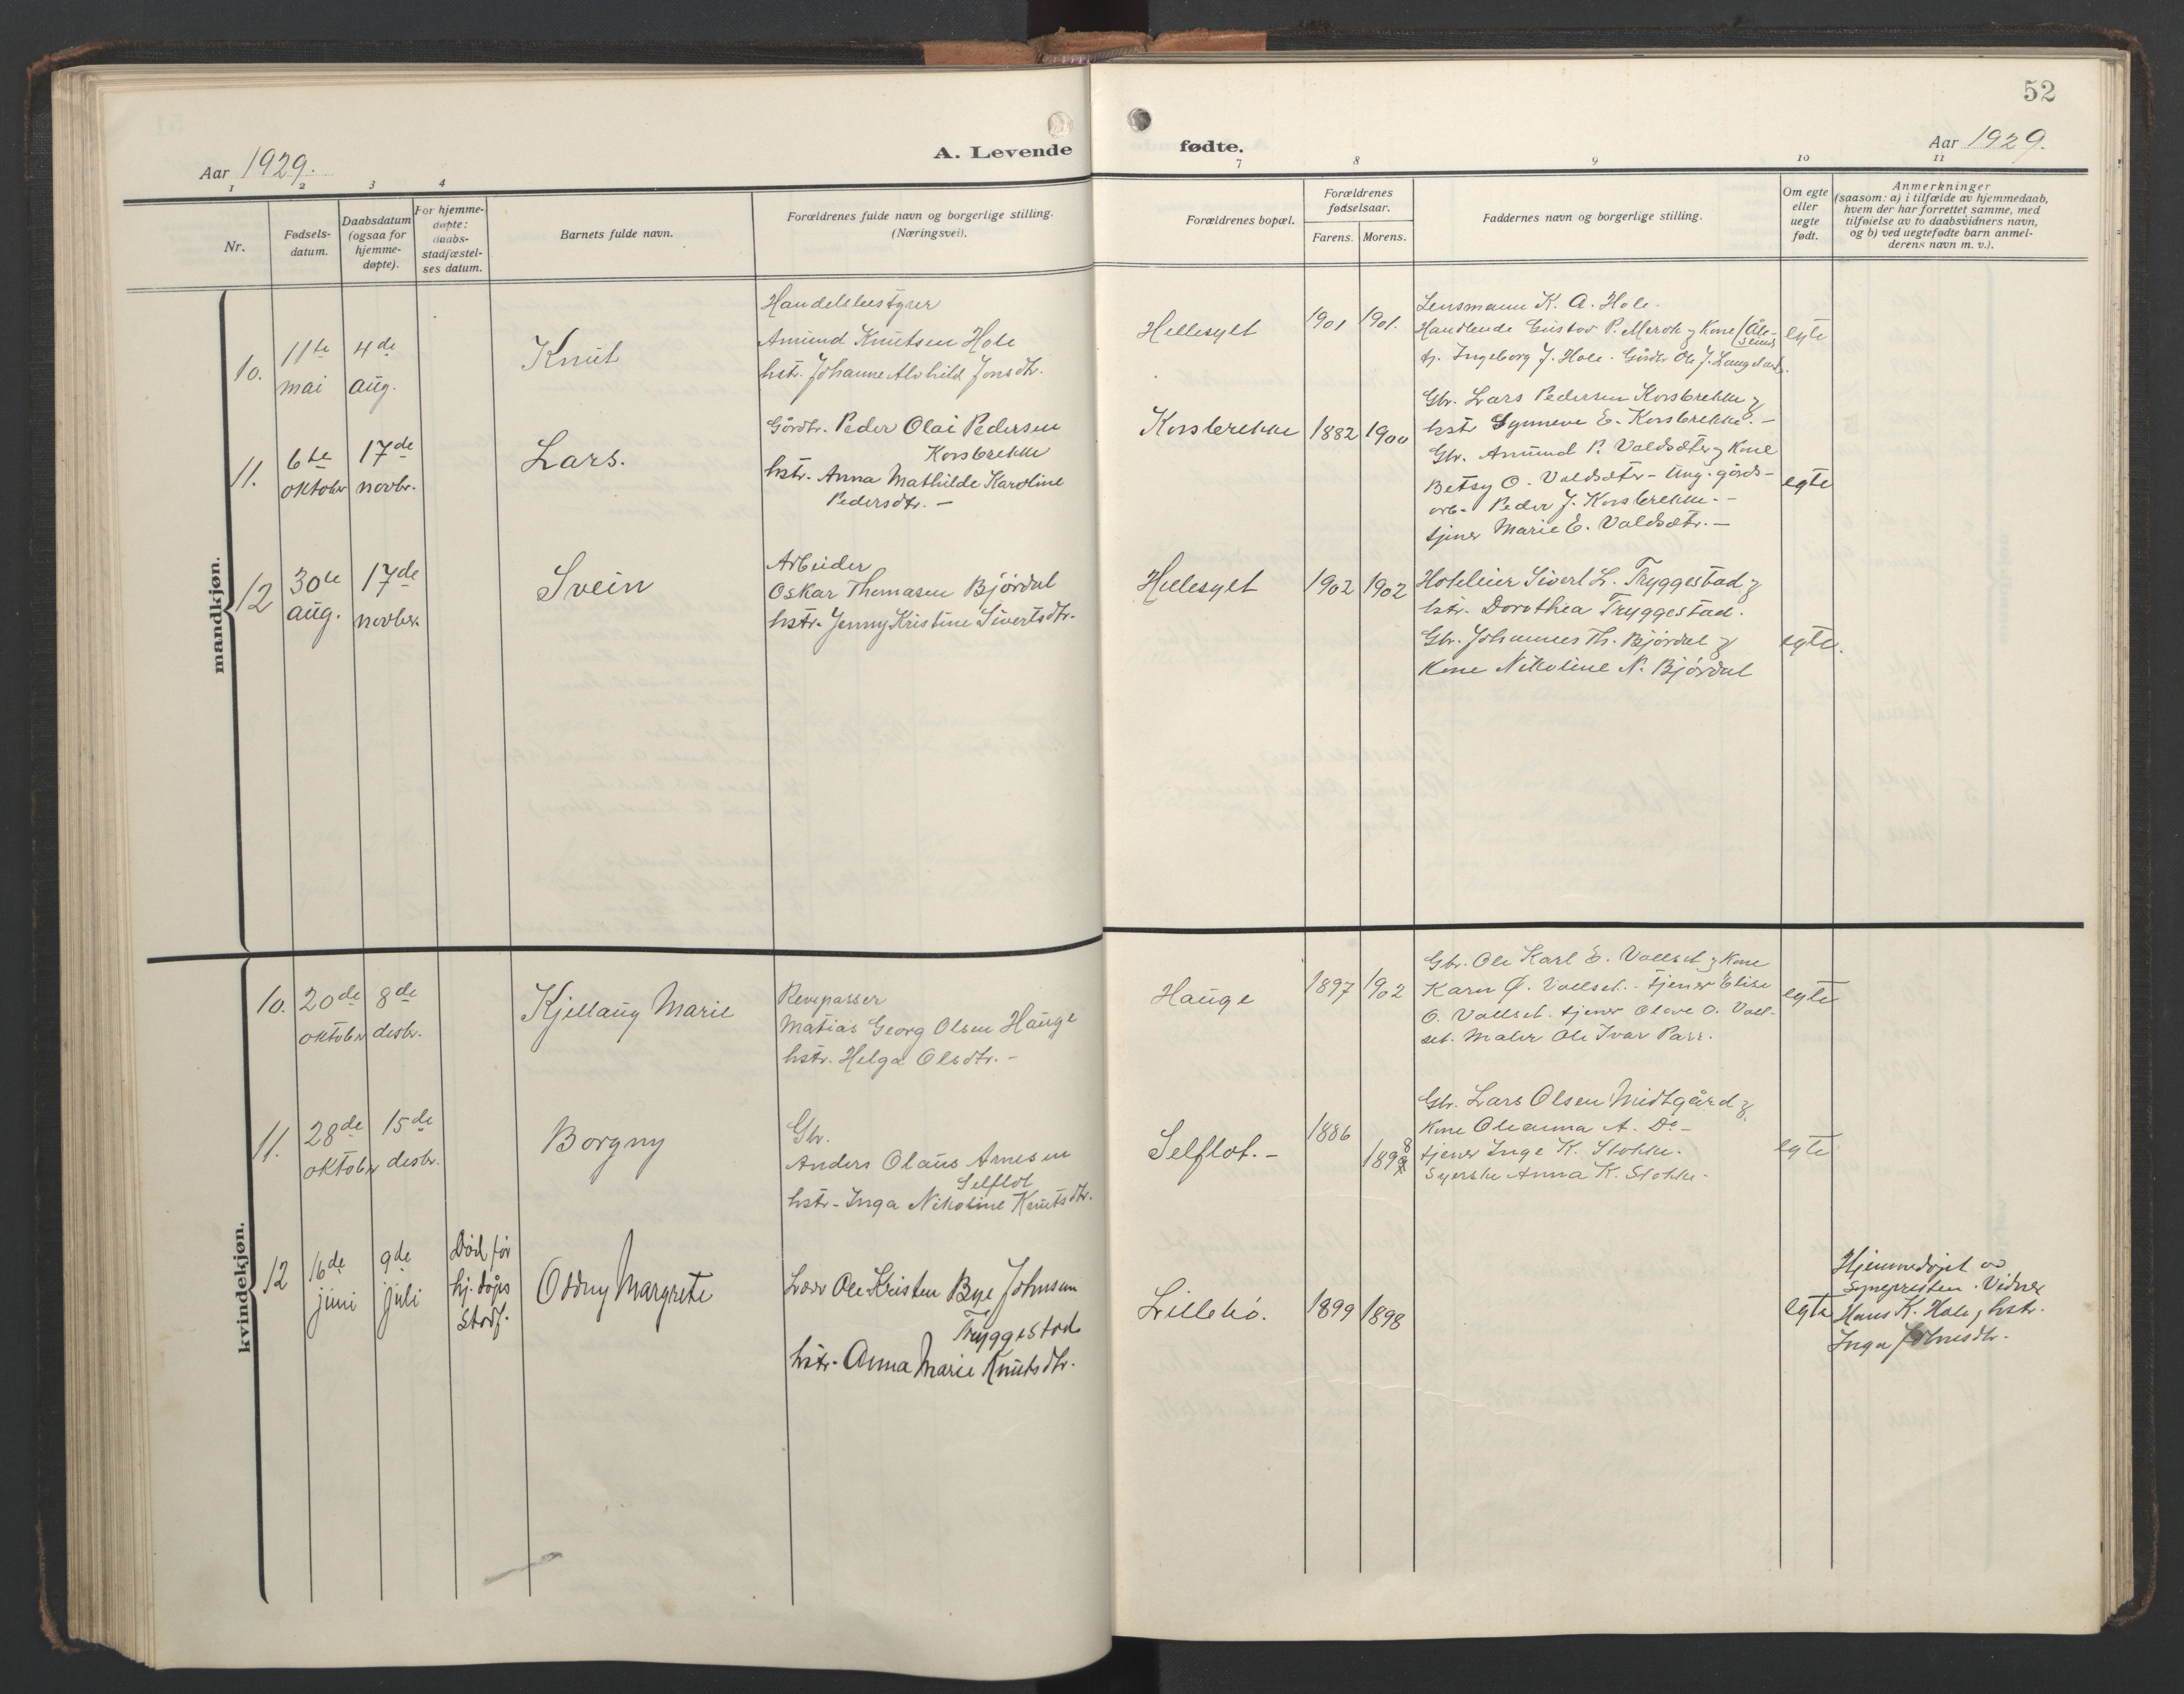 52
Aar 1929.
A. Levende
fødte.
Aar 1929.
1 2 3 4
7 8 9 10 11
Nr.
Fødsels-
datum.
Daabsdatum
(ogsaa for
hjemme-
døpte).
For hjemme-
døpte:
daabs-
stadfæstel-
ses datum.
Barnets fulde navn.
Forældrenes fulde navn og borgerlige stilling.
(Næringsvei).
Forældrenes bopæl.
Forældrenes
fødselsaar.
Farens. Morens.
Faddernes navn og borgerlige stilling.
Om egte
eller
uegte
født.
Anmerkninger
(saasom: a) i tilfælde av hjemmedaab,
hvem der har forrettet samme, med
tilføielse av to daabsvidners navn,
og b) ved uegtefødte barn anmel-
derens navn m. v.).
mandkjøn.
10.
11te
mai
4de
aug.
Knut
Handelsbestyrer
Amund Knutsen Hole
hstr. Johanne Alvhild Jonsdtr.
Hellesylt
1901
1901.
Lensmann K. A. Hole.
Handlende Gustav P. Merok & Kone (Åle-
sund
tj. Ingeborg J. Hole. Gårdbr Ole J. Langeland.
egte
11.
6te
oktober
17de
novbr.
Lars.
Gårdbr. Peder Olai Pedersen
Korsbrekke
hstr. Anna Mathilde Karoline
Pedersdtr. -
Korsbrekke
1882
1900
Gbr. Lars Pedersen Korsbrekke &
hstr Synneve E. Korsbrekke. -
Gbr. Amund P. Valdsæter & Kone
Betsy O. Valdsæter - Ung. gårds-
arb. Peder J. Korsbrekke. -
tjener Marie E. Valdsætr. -
egte
12
30te
aug.
17de
novber.
Svein
Arbeider
Oskar Thomasen Bjørdal
hstr. Jenny Kristine Sivertsdtr.
Hellesylt
1902
1902
Hoteleier Sivert L. Tryggestad &
hstr. Dorothea Tryggestad.
Gbr. Johannes Th. Bjørdal &
Kone Nikoline N. Bjørdal
egte.
kvindekjøn.
10.
20de
oktober
8de
desbr.
Kjellaug Marie
Revepasser
Matias Georg Olsen Hauge
hstr. Helga Olsdtr. -
Hauge
1897
1902
Gbr. Ole Karl E. Vollset & Kone
Karn Ø. Vollset. - tjener Elise
O. Vollset. tjener Olave O. Voll-
set. Maler Ole Ivar Parr.
egte
11.
28de
oktober
15de
desbr.
Borgny
Gbr.
Anders Olaus Arnesen
Selflot
hstr. Inga Nikoline Knutsdtr.
Selflot. -
1886
1898
Gbr. Lars Olsen Midtgård &
Kone Oleanna A. Do -
tjener Inge K. Stokke.
Syerske Anna K. Stokke.
egte
12
16de
juni
9de
juli
Død før
hj. døpes
stadf.
Oddny Margrete
Lærer Ole Kristen Bye Johnsen
Tryggestad
hstr. Anna Marie Knutsdtr.
Lillebø.
1899
1898
egte
Hjemmedøpt av
Sognepresten. Vidner
Hans K. Hole, hstr.
Inga Johnsdtr.